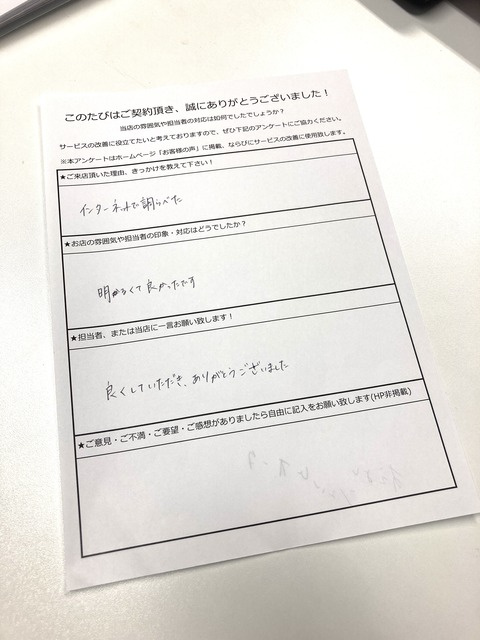 このたびはご契約頂き、誠にありがとうございました！
当店の雰囲気や担当者の対応は如何でしたでしょうか？
サービスの改善に役立てたいと考えておりますので、ぜひ下記のアンケートにご協力ください。
※本アンケートはホームページ「お客様の声」に掲載、ならびにサービスの改善に使用致します。
★ご来店頂いた理由、きっかけを教えて下さい！
インターネットで調らべた
★お店の雰囲気や担当者の印象・対応はどうでしたか？
明かるくて良かったです
★担当者、または当店に一言お願い致します！
良くしていただき、ありがとうございました
★ご意見・ご不満・ご要望・ご感想がありましたら自由に記入をお願い致します(HP非掲載)